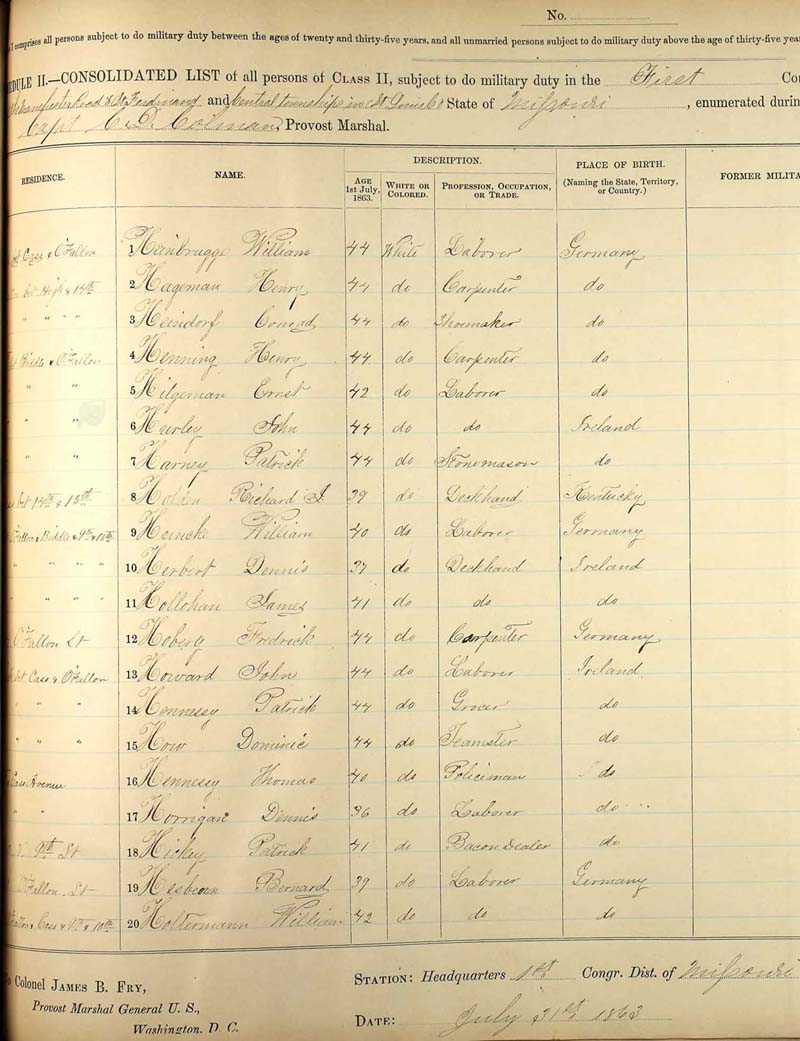 No.
comprises all persons subject to do military duty between the ages of twenty and thirty-five years, and all unmarried persons subject to do military duty above the age of thirty-five
DULE II.—CONSOLIDATED LIST of all persons of CLASS II, subject to do military duty in the First
Road & St Ferdinand and Central townships in St Louis Co State of Missouri, enumerated
Capt C. D. Colman, Provost Marshal.
RESIDENCE. NAME. DESCRIPTION. PLACE OF BIRTH. FORMER
AGE 1st July, 1863. WHITE OR COLORED. PROFESSION, OCCUPATION, OR TRADE. (Naming the State, Territory, or Country.)
Cass & O'Fallon 1 William 44 White Laborer Germany
High & 14th 2 Hageman Henry 44 do Carpenter do
" " " " 3 Heindorf Conrad 44 do Shoemaker do
Biddle & O'Fallon 4 Henning Henry 44 do Carpenter do
" " 5 Hilgeman Ernst 42 do Laborer do
" " 6 Hurley John 44 do do Ireland
" " 7 Harney Patrick 44 do Stone mason do
14th & 15th 8 Holden Richard J. 39 do Deckhand Kentucky
Fallon & Biddle & 9th & 10th 9 Heincke William 40 do Laborer Germany
" " " " 10 Herbert Dennis 37 do Deckhand Ireland
" " " " 11 Hollohan James 41 do do do
O'Fallon St 12 Hoberg Fredrick 44 do Carpenter Germany
Cass & O'Fallon 13 Howard John 44 do Laborer Ireland
" " " 14 Hennessy Patrick 44 do Grocer do
" " " 15 How Dominic 44 do Teamster do
Cass Avenue 16 Hennessy Thomas 40 do Policeman do
" " 17 Horrigan Dennis 36 do Laborer do
9th St 18 Hickey Patrick 41 do Bacon Dealer do
O'Fallon St 19 Bernard 39 do Laborer Germany
Cass & 9th & 10th 20 Holtermann William 42 do do do
Colonel JAMES B. FRY,
Provost Marshal General U. S.,
Washington, D. C.
STATION: Headquarters 1st Congr. Dist. of Missouri
DATE: July 31st 1863